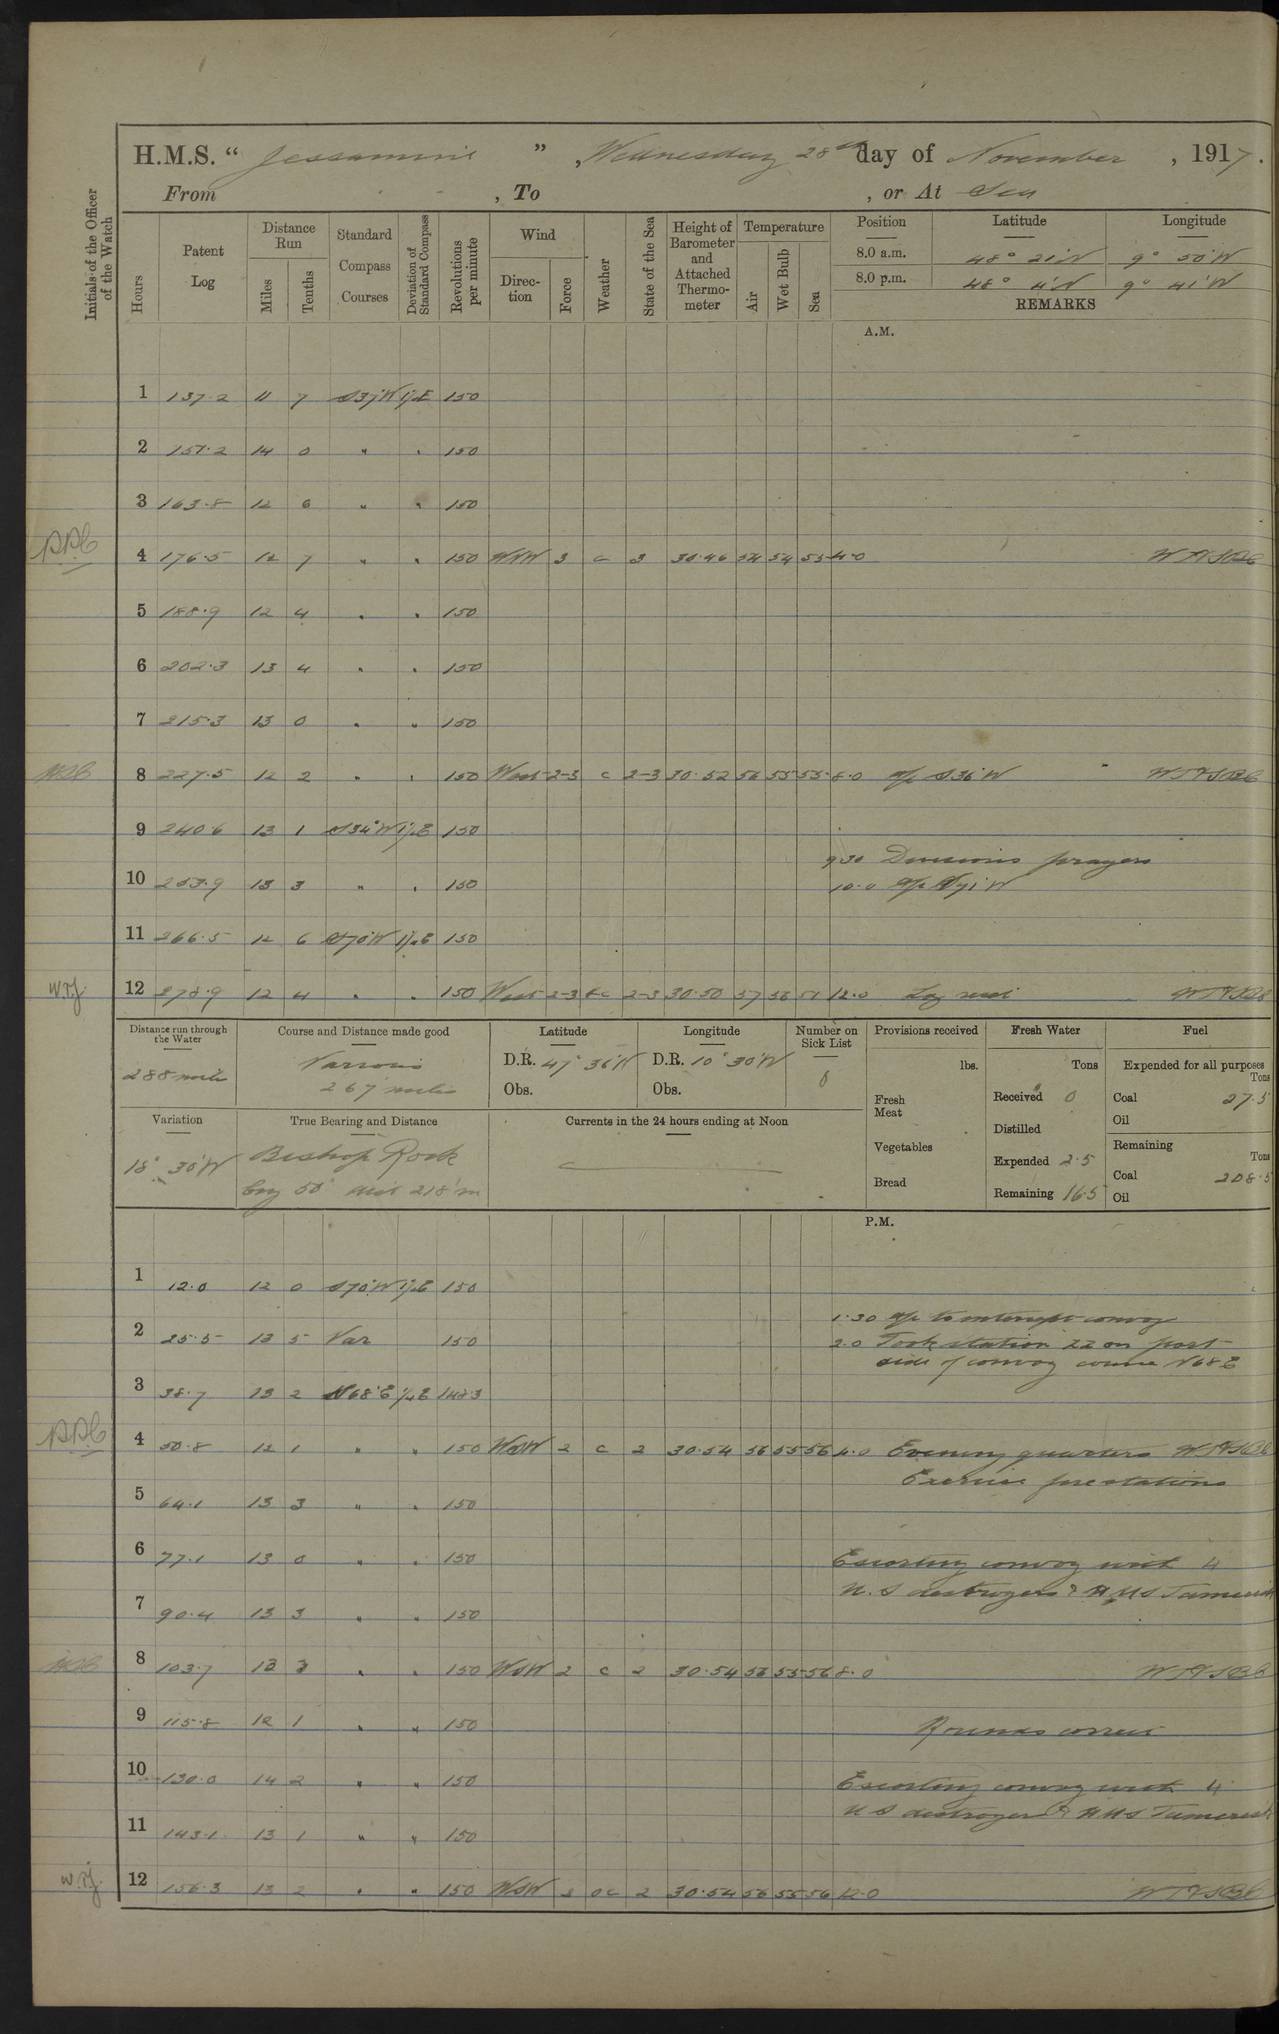 H.M.S. “ Jessamine ” , Wednesday 28th day of November , 1917.
From , To , or At Sea
Initials of the Officer of the Watch
Hours
Patent Log
Distance Run
Miles
Tenths
Standard Compass Courses
Deviation of Standard Compass
Revolutions per minute
Wind
Direction
Force
Weather
State of the Sea
Height of Barometer and Attached Thermometer
Temperature
Air
Wet Bulb
Sea
Position Latitude Longitude
8.0 a.m. 48° 21'N 9° 50'W
8.0 p.m. 48° 4'N 9° 41'W
REMARKS
A.M.
1 137.2 11 7 S37°W 1½E 150
2 151.2 14 0 " " 150
3 163.8 12 6 " " 150
4 176.5 12 7 " " 150 3 c 3 30.46 54 54 55 4.0
5 188.9 12 4 " " 150
6 202.3 13 4 " " 150
7 215.3 13 0 " " 150
8 227.5 12 2 " " 150 West 2-3 c 2-3 30.52 56 55 55 8.0 a/c S36°W
9 240.6 13 1 S34°W 1½E 150
9.30 Divisions prayers
10 253.9 13 3 " " 150 10.0 a/c S71°W
11 266.5 12 6 S70°W 150
W.T.J. 12 278.9 12 4 " " 150 West 2-3 bc 2-3 30.50 57 56 12.0
Distance run through the Water
288 miles
Course and Distance made good
Various
267 miles
Latitude
D.R. 47° 36'N
Obs.
Longitude
D.R. 10° 30'W
Obs.
Number on Sick List
0
Provisions received
lbs.
Fresh Meat
Vegetables
Bread
Fresh Water
Tons
Received 0
Distilled
Expended 2.5
Remaining 16.5
Fuel
Expended for all purposes
Tons
Coal 27.5
Oil
Remaining
Tons
Coal 208.5
Oil
Variation
18° 30'W
True Bearing and Distance
Bishop Rock
brg 50° dist 218'm
Currents in the 24 hours ending at Noon
P.M.
1 12.0 12 0 S70°W 1½E 150
1.30 a/c to intercept convoy
2 25.5 13 5 Var 150 2.0 Took station 22 on port
side of convoy course N68E
3 38.7 13 2 N68°E ¼E 148.3
4 50.8 12 1 " " 150 WSW 2 c 2 30.54 56 55 56 4.0 Evening quarters
Exercise fire stations
5 64.1 13 3 " " 150
6 77.1 13 0 " " 150 Escorting convoy with 4
U.S destroyers & HMS Tamarisk
7 90.4 13 3 " " 150
8 103.7 13 3 " " 150 WSW 2 c 2 30.54 56 55 56 8.0
9 115.8 12 1 " " 150 Rounds correct
10 130.0 14 2 " " 150 Escorting convoy with 4
U S destroyers & HMS Tamarisk
11 143.1 13 1 " " 150
W.T.J. 12 156.3 13 2 " " 150 WSW 2 oc 2 30.54 56 55 56 12.0